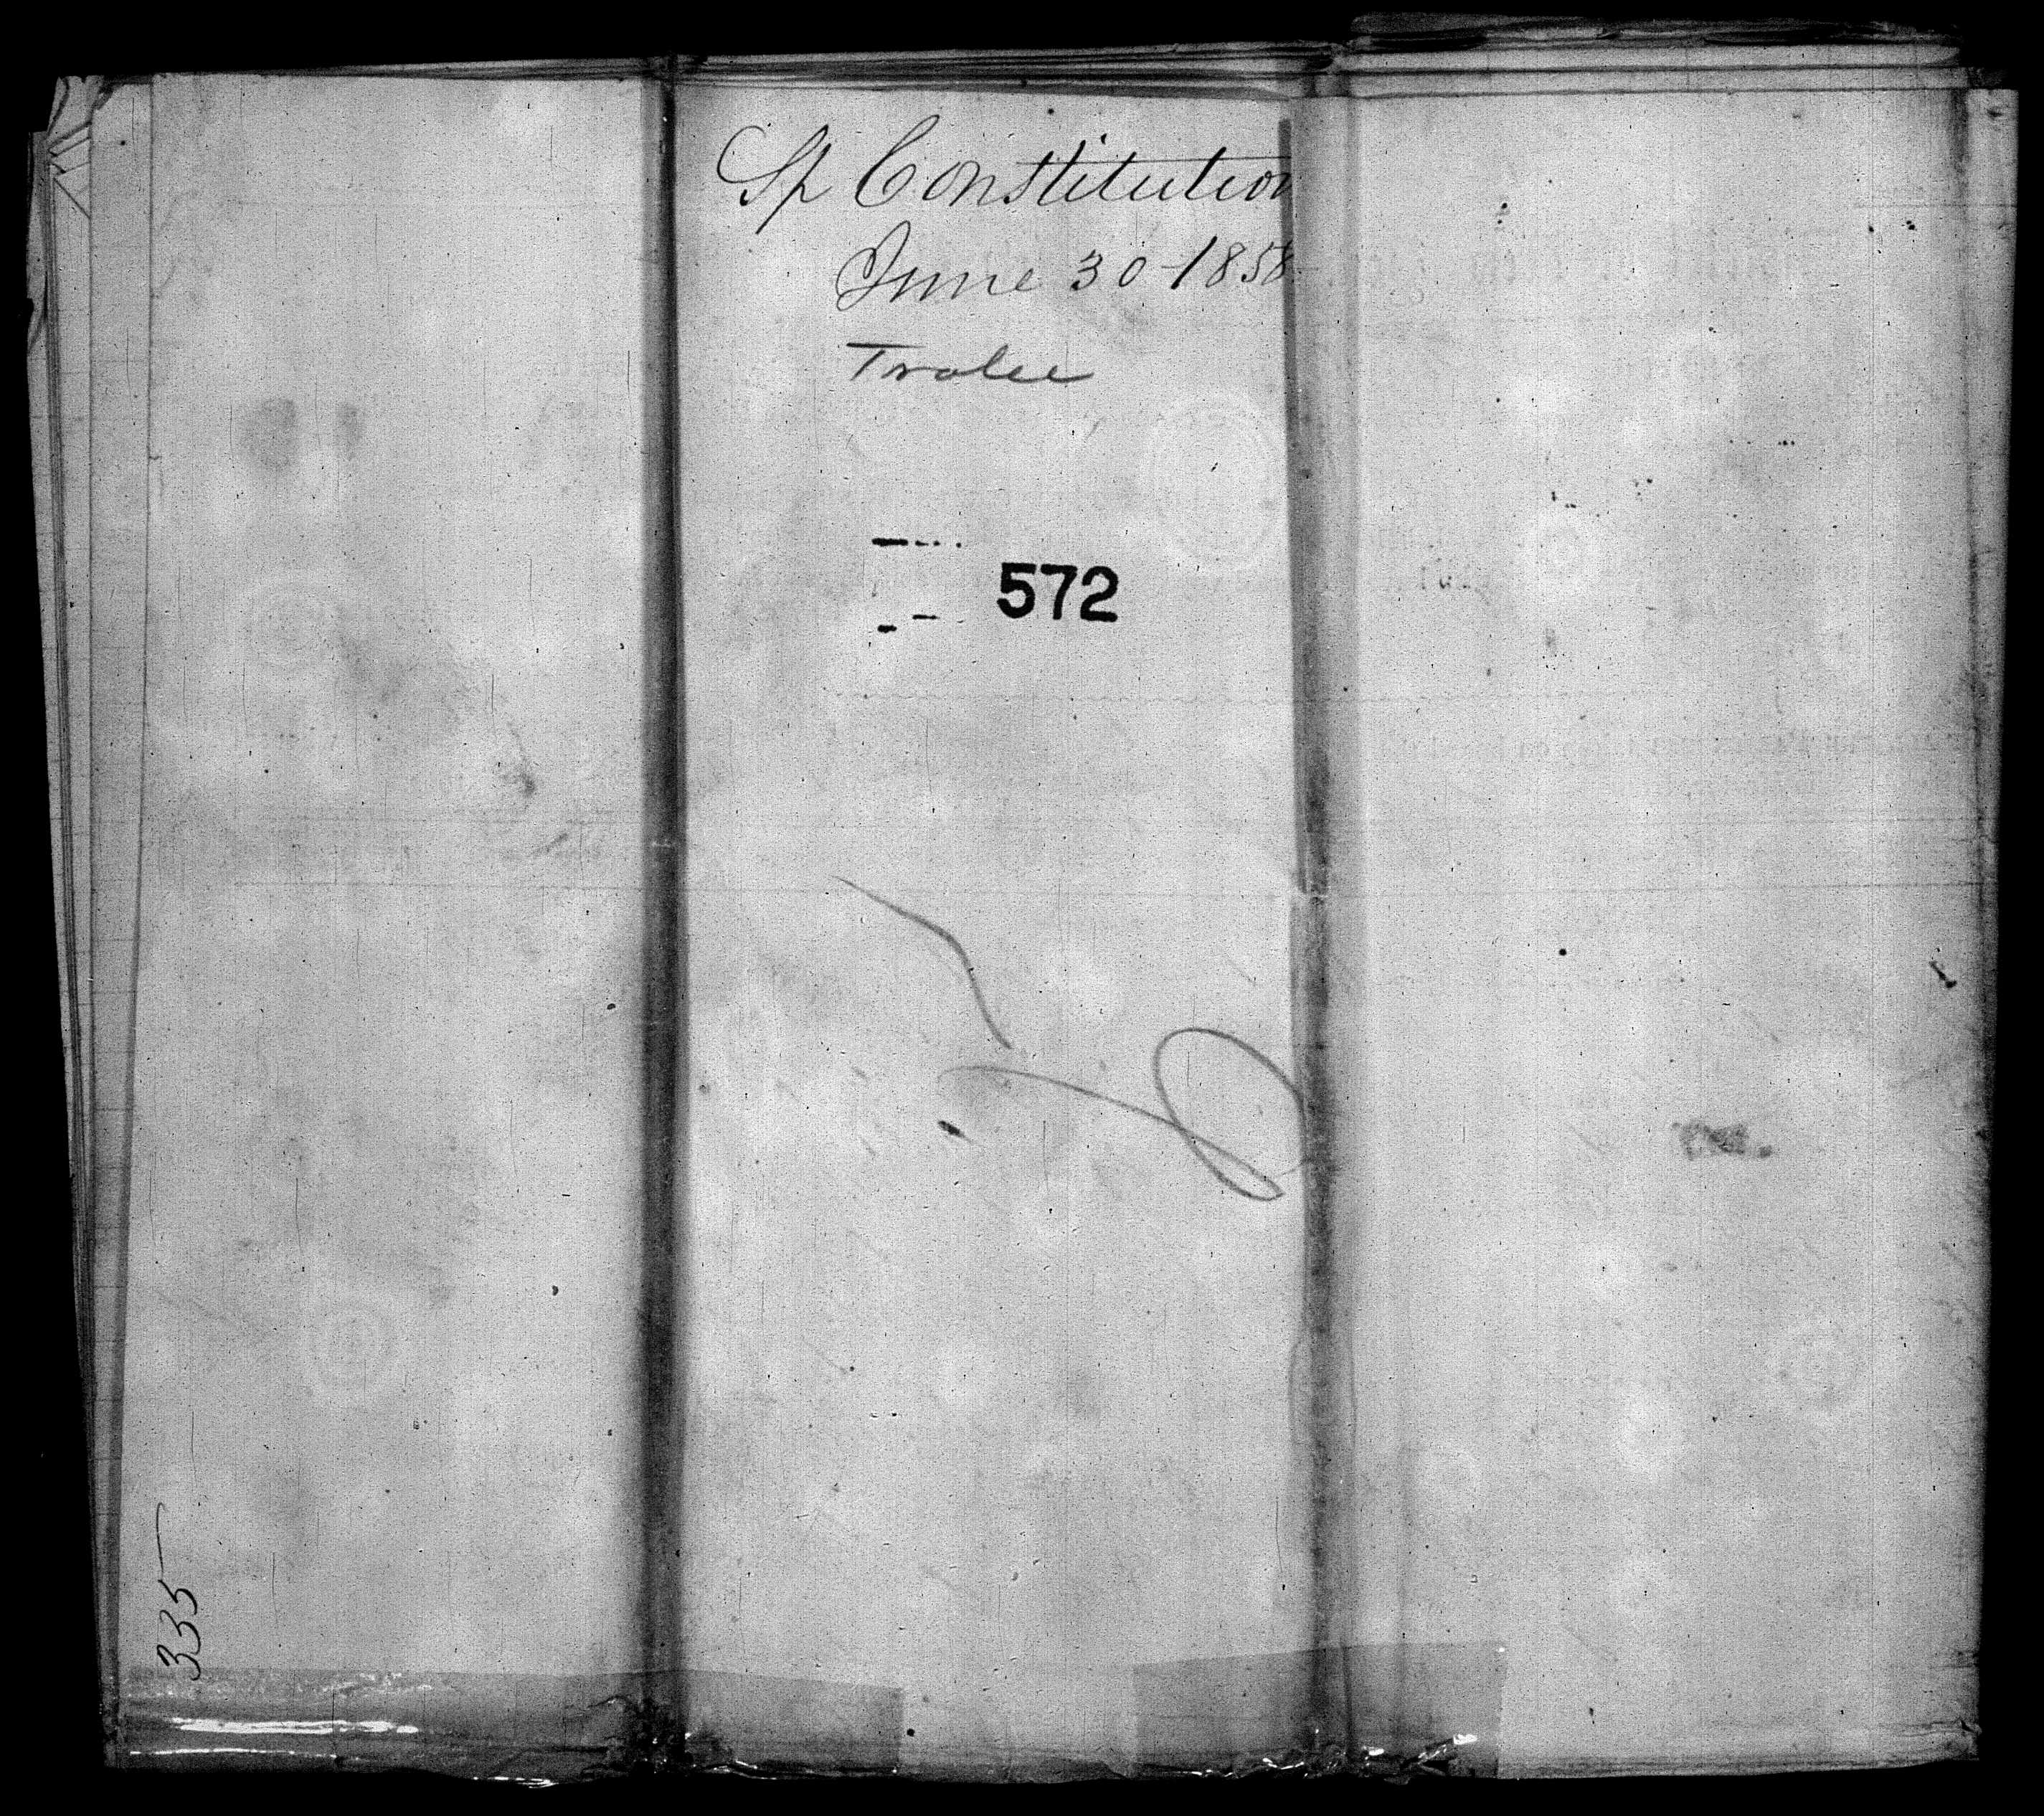 Sp Constitution
June 30-1858
Tralee
572
335